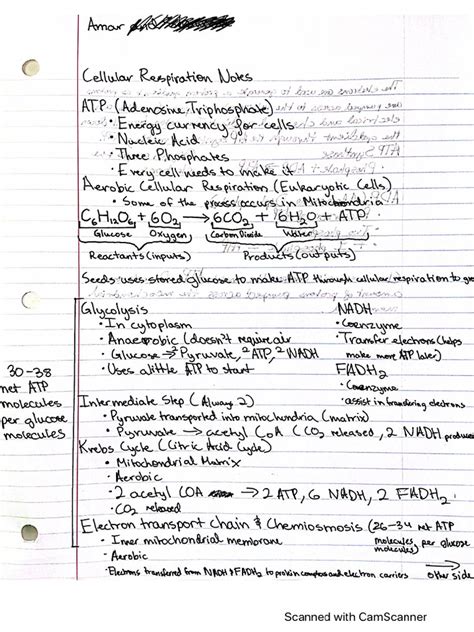 Amar
Cellular Respiration Notes
ATP (Adenosine Triphosphate)
• Energy currency for cells
• Nucleic Acid
• Three Phosphates
• Every cell needs to make it
Aerobic Cellular Respiration (Eukaryotic Cells)
• Some of the process occurs in Mitochondria
C6H12O6 + 6O2 → 6CO2 + 6H2O + ATP
Glucose Oxygen Carbon Dioxide Water
Reactants (inputs) Products (outputs)
Seeds uses stored glucose to make ATP through cellular respiration to
Glycolysis
• In cytoplasm
• Anaerobic (doesn't require air
• Glucose → Pyruvate, 2 ATP, 2 NADH
• Uses a little ATP to start
NADH
• Coenzyme
• Transfer electrons (helps
make more ATP later)
FADH2
• Coenzyme
• assist in transfering electrons
30-38
net ATP
molecules
per glucose
molecules
Intermediate Step (Always 2)
• Pyruvate transported into mitochondria (matrix)
• Pyruvate → acetyl CoA (CO2 released, 2 NADH
Krebs Cycle (Citric Acid Cycle)
• Mitochondrial Matrix
• Aerobic
• 2 acetyl COA → 2 ATP, 6 NADH, 2 FADH2
• CO2 released
Electron transport Chain & Chemiosmosis (26-34 net ATP
molecules per glucose
molecules)
• Inner mitochondrial membrane
• Aerobic
• Electrons transferred from NADH & FADH2 to protein complexes and electron carriers
other side
Scanned with CamScanner